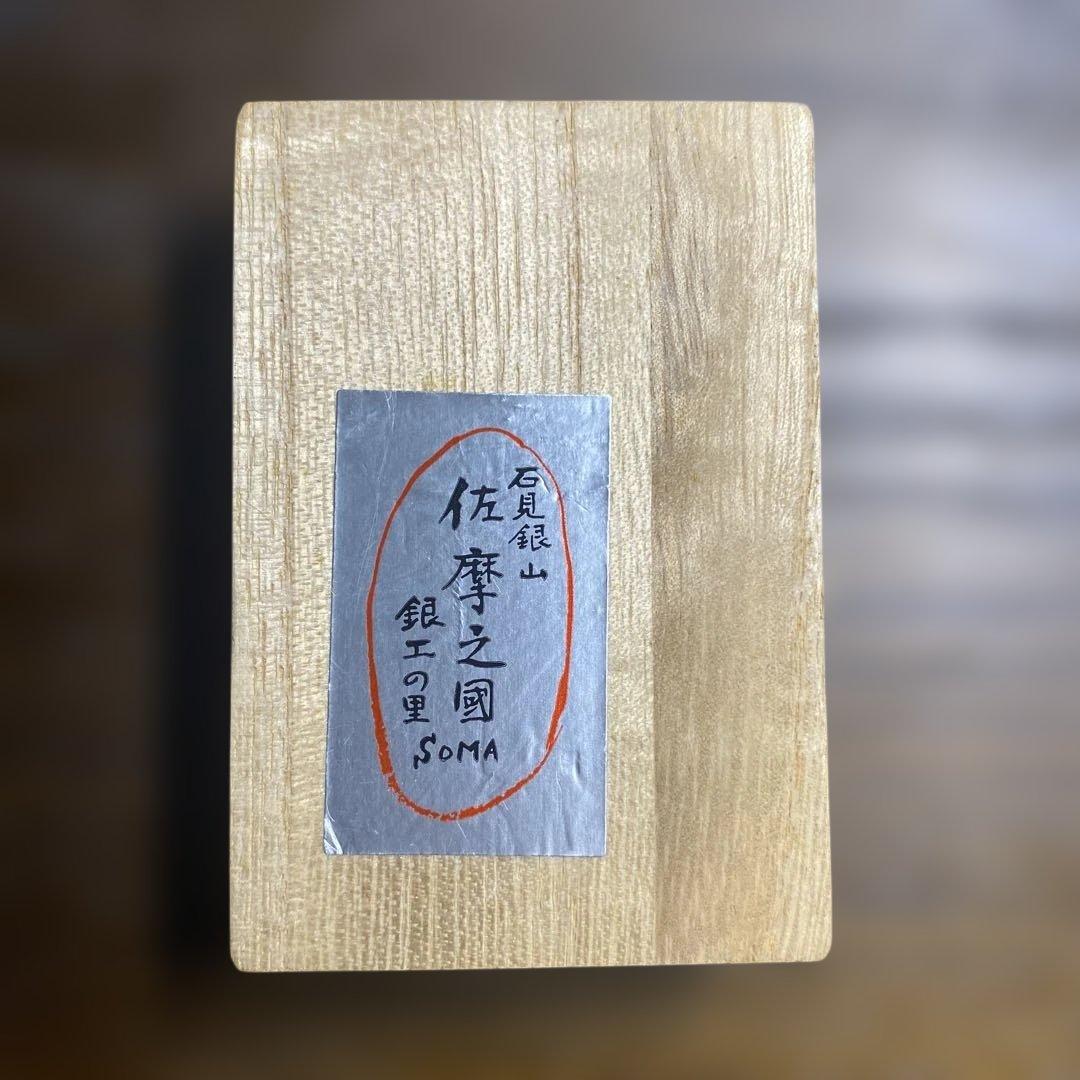 石見銀山
佐摩之國
銀工の里
SOMA